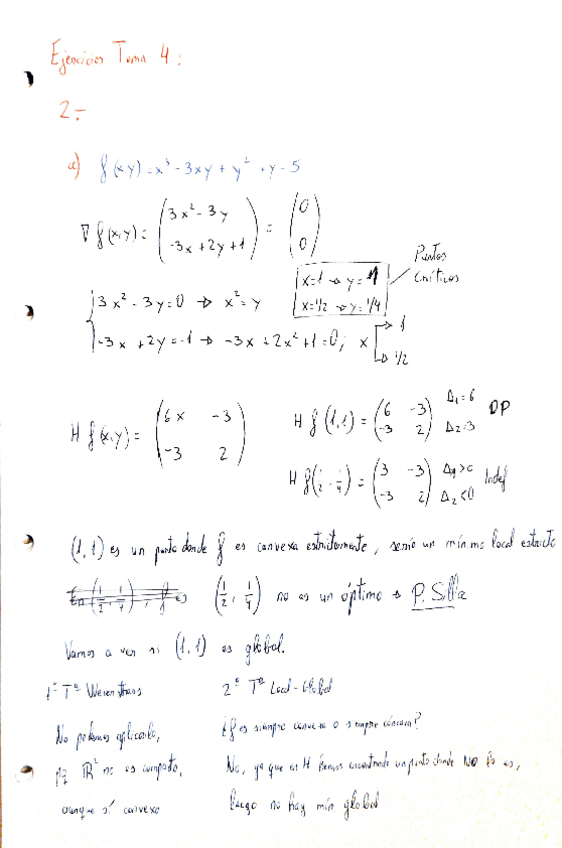 Ejercicios Tema 4:
2.-
a) f(x,y) = x³ - 3xy + y² + y - 5
∇ f(x,y) = (3x² - 3y ; -3x + 2y + 1) = (0 ; 0)
Puntos Críticos
x=1 → y=1
x=1/2 → y=1/4
3x² - 3y = 0 → x² = y
-3x + 2y = -1 → -3x + 2x² + 1 = 0; x → 1
→ 1/2
H f(x,y) = (6x -3 ; -3 2)
H f(1,1) = (6 -3 ; -3 2) Δ₁ = 6 Δ₂ = 3 DP
H f(1/2, 1/4) = (3 -3 ; -3 2) Δ₁ > 0 Δ₂ < 0 Indef
(1,1) es un punto donde f es convexa estrictamente, sería un mínimo local estricto
(1/2, 1/4) no es un óptimo → P. Silla
Vamos a ver si (1,1) es global.
1º Tª Weierstrass
No podemos aplicarlo,
pq ℝ² no es compacto,
aunque sí convexo
2º Tª Local-Global
¿f es siempre convexa o siempre cóncava?
No, ya que en H hemos encontrado un punto donde NO lo es,
luego no hay mín global